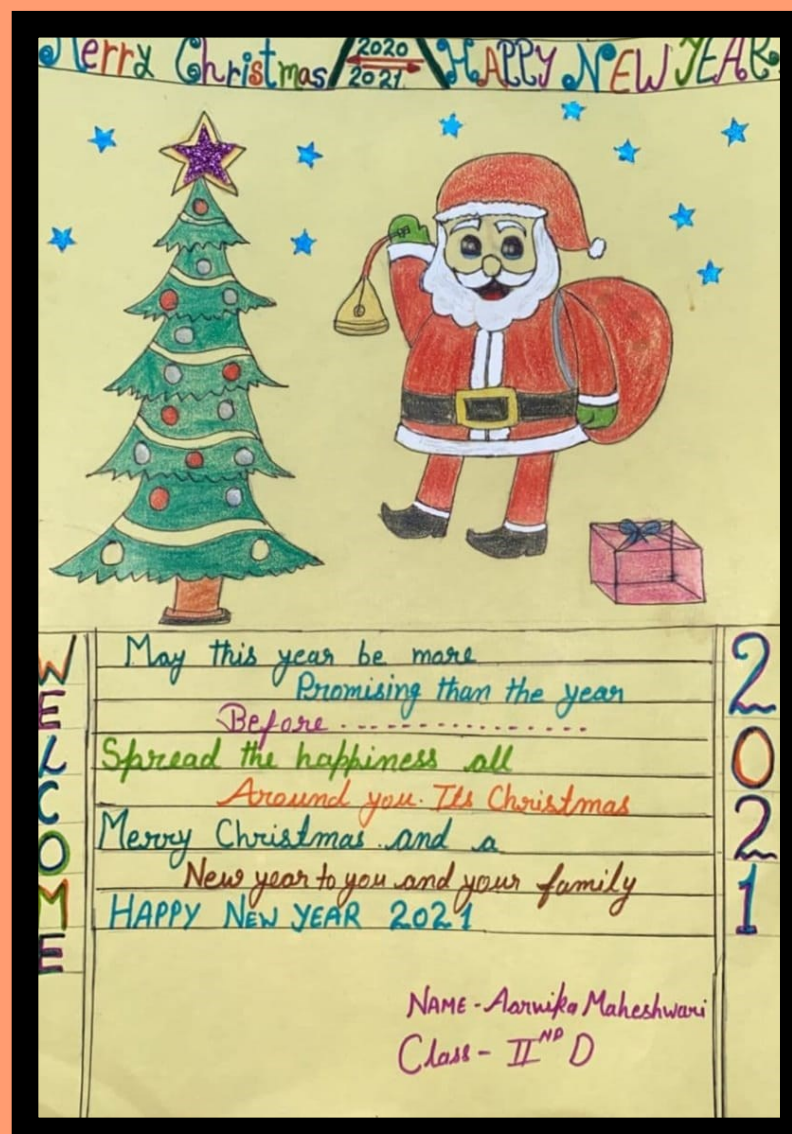 Merry Christmas 2020 2021 HAPPY NEW YEAR
May this year be more
Promising than the year
Before ...............
Spread the happiness all
Around you. Its Christmas
Merry Christmas and a
New year to you and your family
HAPPY NEW YEAR 2021
WELCOME
2021
NAME - Aarnika Maheshwari
Class - II ND D